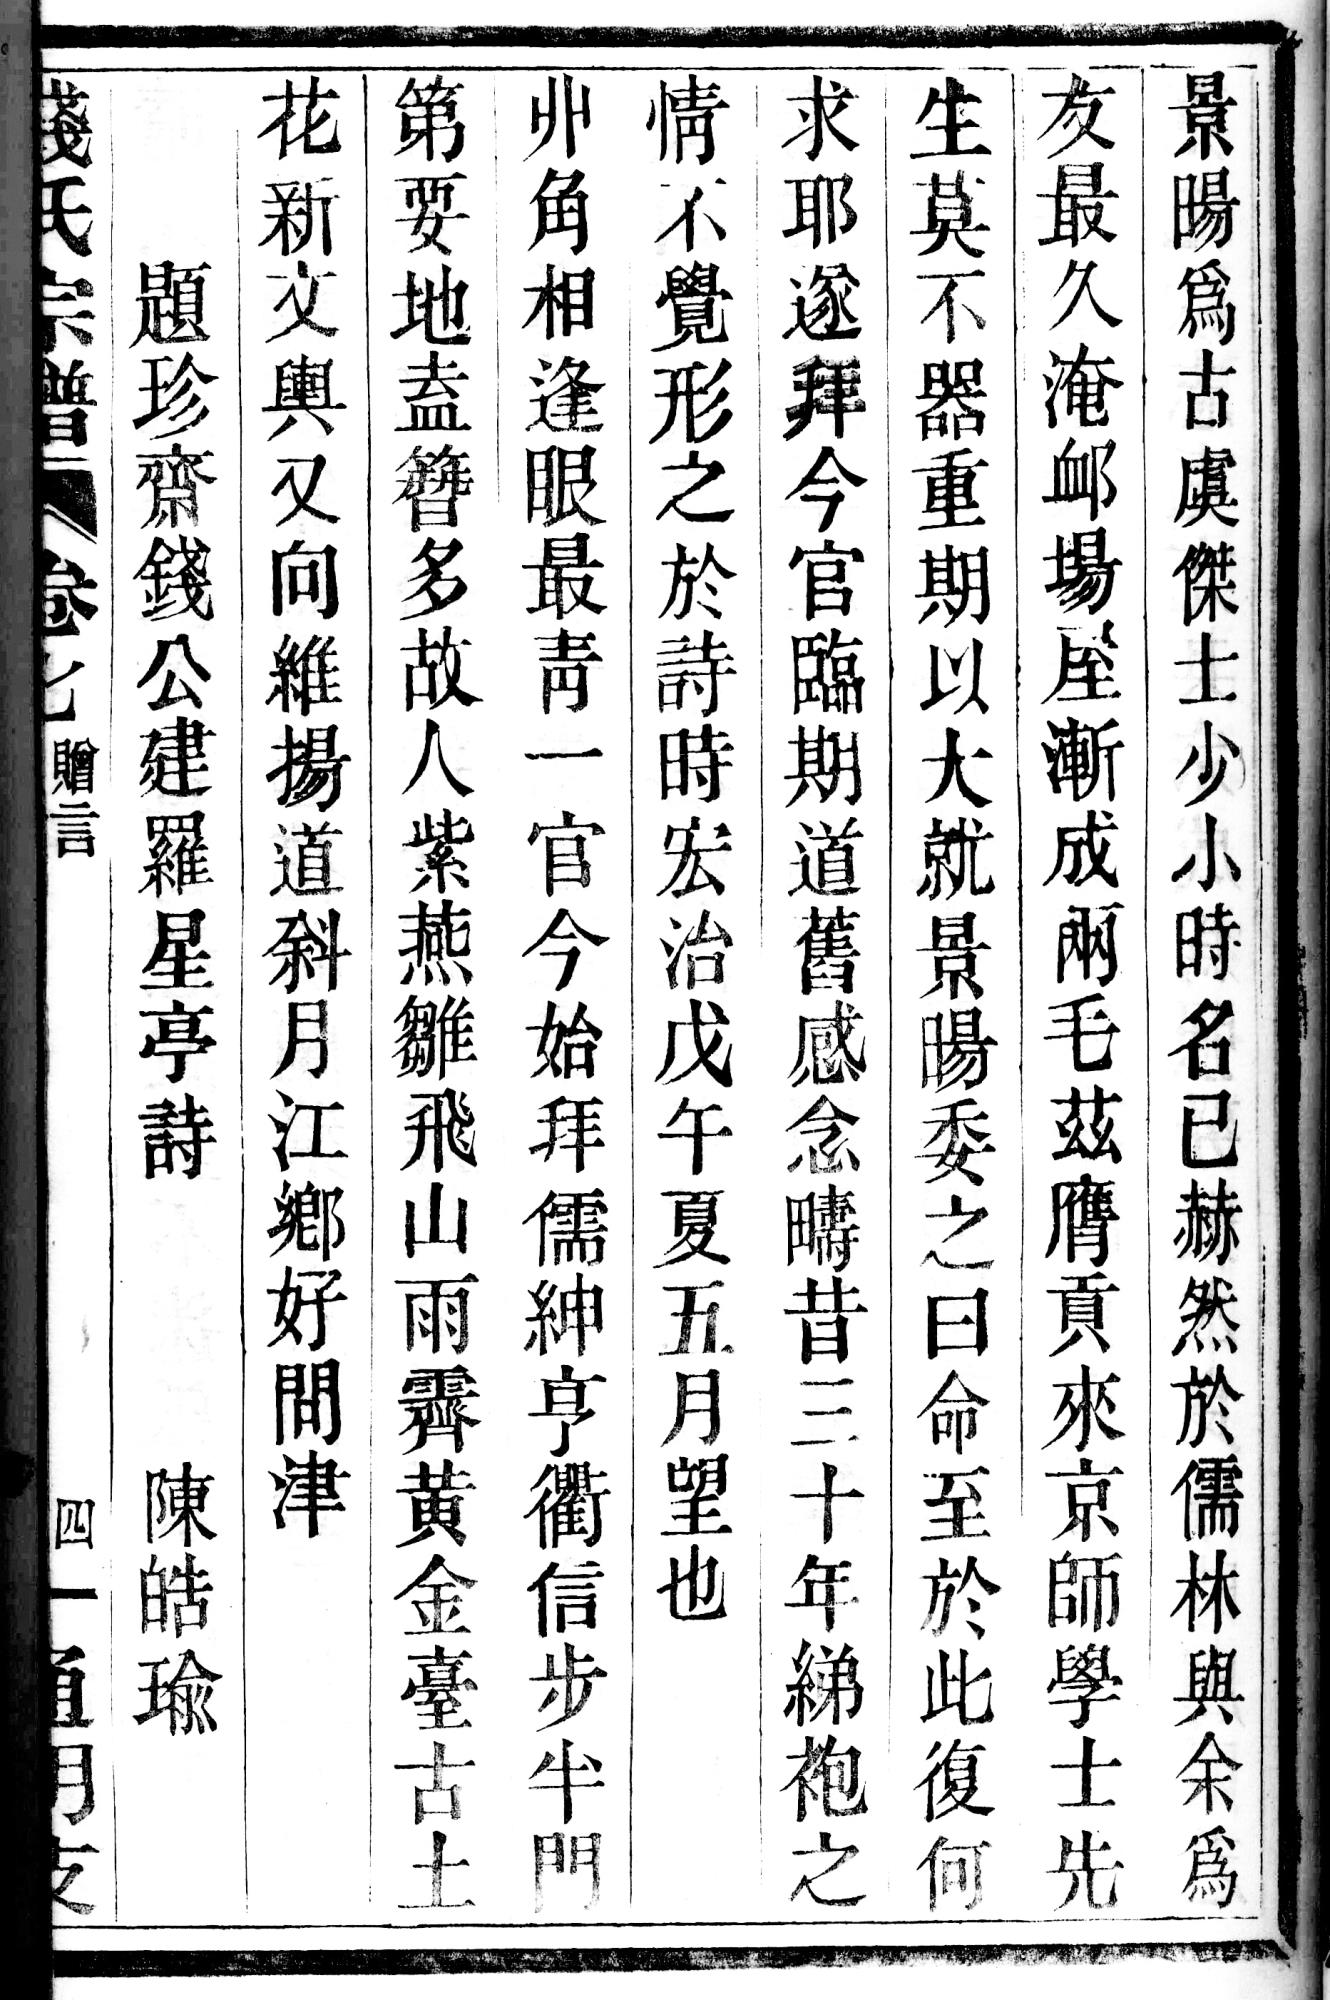 景暘爲古虞傑士少小時名已赫然於儒林與余爲
友最久淹䘏場屋漸成兩毛茲膺貢來京師學士先
生莫不器重期以大就景暘委之曰命至於此復何
求耶遂拜今官臨期道舊感念疇昔三十年綈袍之
情不覺形之於詩時宏治戊午夏五月望也
丱角相逢眼最青一官今始拜儒紳亨衢信步半門
第要地盍簪多故人紫燕雛飛山雨霽黃金臺古土
花新文輿又向維揚道斜月江鄉好問津
題珍齋錢公建羅星亭詩 陳皓瑜
錢氏宗譜 卷七 贈言 四一 通明支